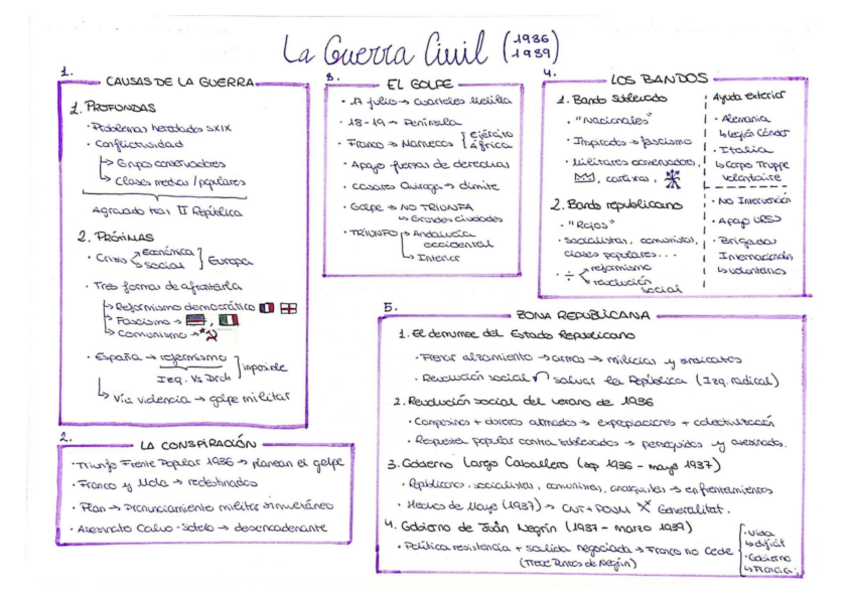 La Guerra Civil (1936 1939)
1.
CAUSAS DE LA GUERRA
1. PROFUNDAS
· Problemas heredados SXIX
· Conflictividad
↳ Grupos conservadores
↳ Clases medias / populares
Agravado tras II República
2. PRÓXIMAS
· Crisis económica social } Europa
· Tres formas de afrontarla
↳ Reformismo democrático
↳ Fascismo →
↳ Comunismo →
· España → reformismo } imposible
Izq. Vs Drch
↳ Vía violencia → golpe militar
2.
LA CONSPIRACIÓN
· Triunfo Frente Popular 1936 → planean el golpe
· Franco y Mola → redestinados
· Plan → pronunciamiento militar simultáneo
· Asesinato Calvo-Sotelo → desencadenante
3.
EL GOLPE
· 17 julio → cuarteles Melilla
· 18-19 → Península
· Franco → Marruecos { ejército África
· Apoyo fuerzas de derechas
· Casares Quiroga → dimite
· Golpe → NO TRIUNFA
↳ Grandes ciudades
· TRIUNFO → Andalucía occidental
↳ Interior
4.
LOS BANDOS
1. Bando sublevado
· "Nacionales"
· Inspirados → fascismo
· Militares conservadores,
, carlistas,
2. Bando republicano
· "Rojos"
· Socialistas, comunistas,
clases populares...
· ÷ reformismo
revolución social
Ayuda exterior
· Alemania
↳ Legión Cóndor
· Italia
↳ Corpo Truppe
Volontarie
· No Intervención
· Apoyo URSS
· Brigadas
Internacionales
↳ voluntarios
5.
ZONA REPUBLICANA
1. El derrumbe del Estado Republicano
· Frenar alzamiento → armas → milicias y sindicatos
· Revolución social salvar la República (Izq. radical)
2. Revolución social del verano de 1936
· Campesinos + obreros armados → expropiaciones + colectivización
· Respuesta popular contra sublevados → perseguidos y asesinados.
3. Gobierno Largo Caballero (sep 1936 - mayo 1937)
· Republicanos, socialistas, comunistas, anarquistas → enfrentamientos
· Hechos de Mayo (1937) → CNT + POUM Generalitat.
4. Gobierno de Juan Negrín (1937 - marzo 1939)
· Política resistencia + salida negociada → Franco no cede
(Trece Puntos de Negrín)
· Vida
↳ difícil
· Gobierno
↳ Francia